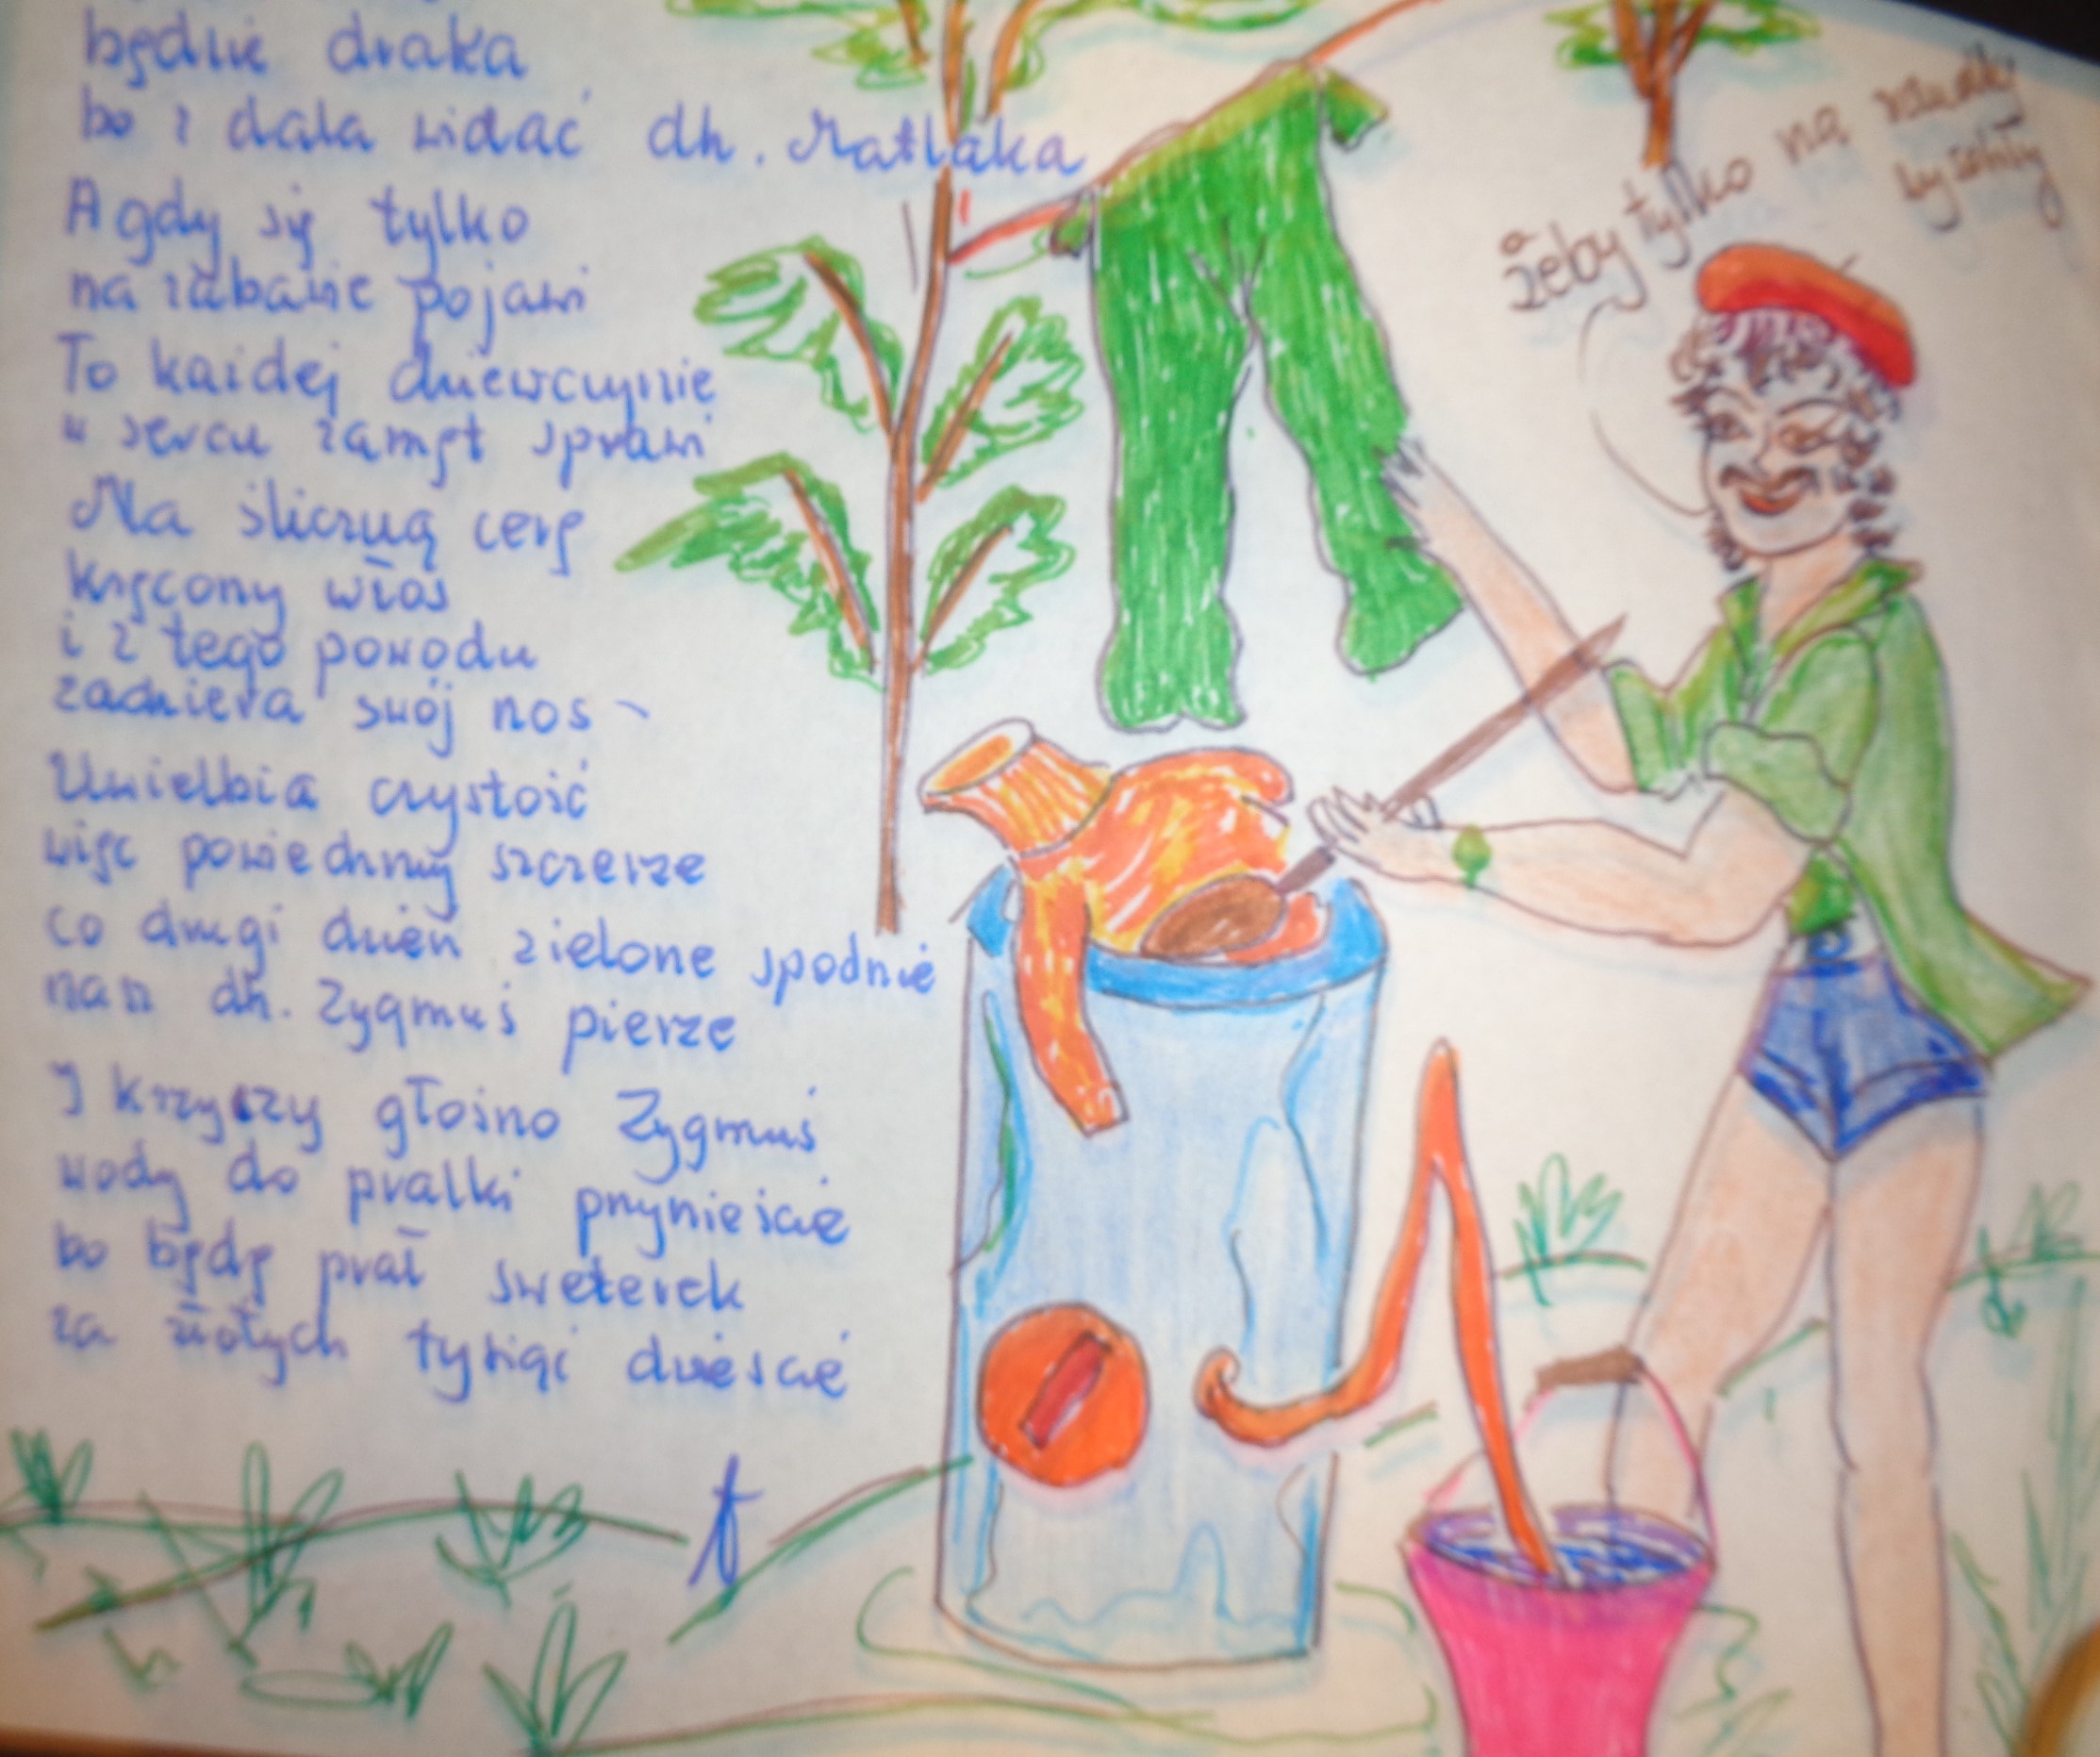 będzie draka
bo z dala widać dh. Matłaka
A gdy się tylko
na zabawie pojawi
To każdej dziewczynie
w sercu zamęt sprawi
Ma śliczną cerę
kręcony włos
i z tego powodu
zadziera swój nos
Uwielbia czystość
więc powiedzmy szczerze
co drugi dzień zielone spodnie
nasz dh. Zygmuś pierze
I krzyczy głośno Zygmuś
wody do pralki przynieście
bo będę prał sweterek
za złotych tysiąc dwieście
a
żeby tylko na
wyschły